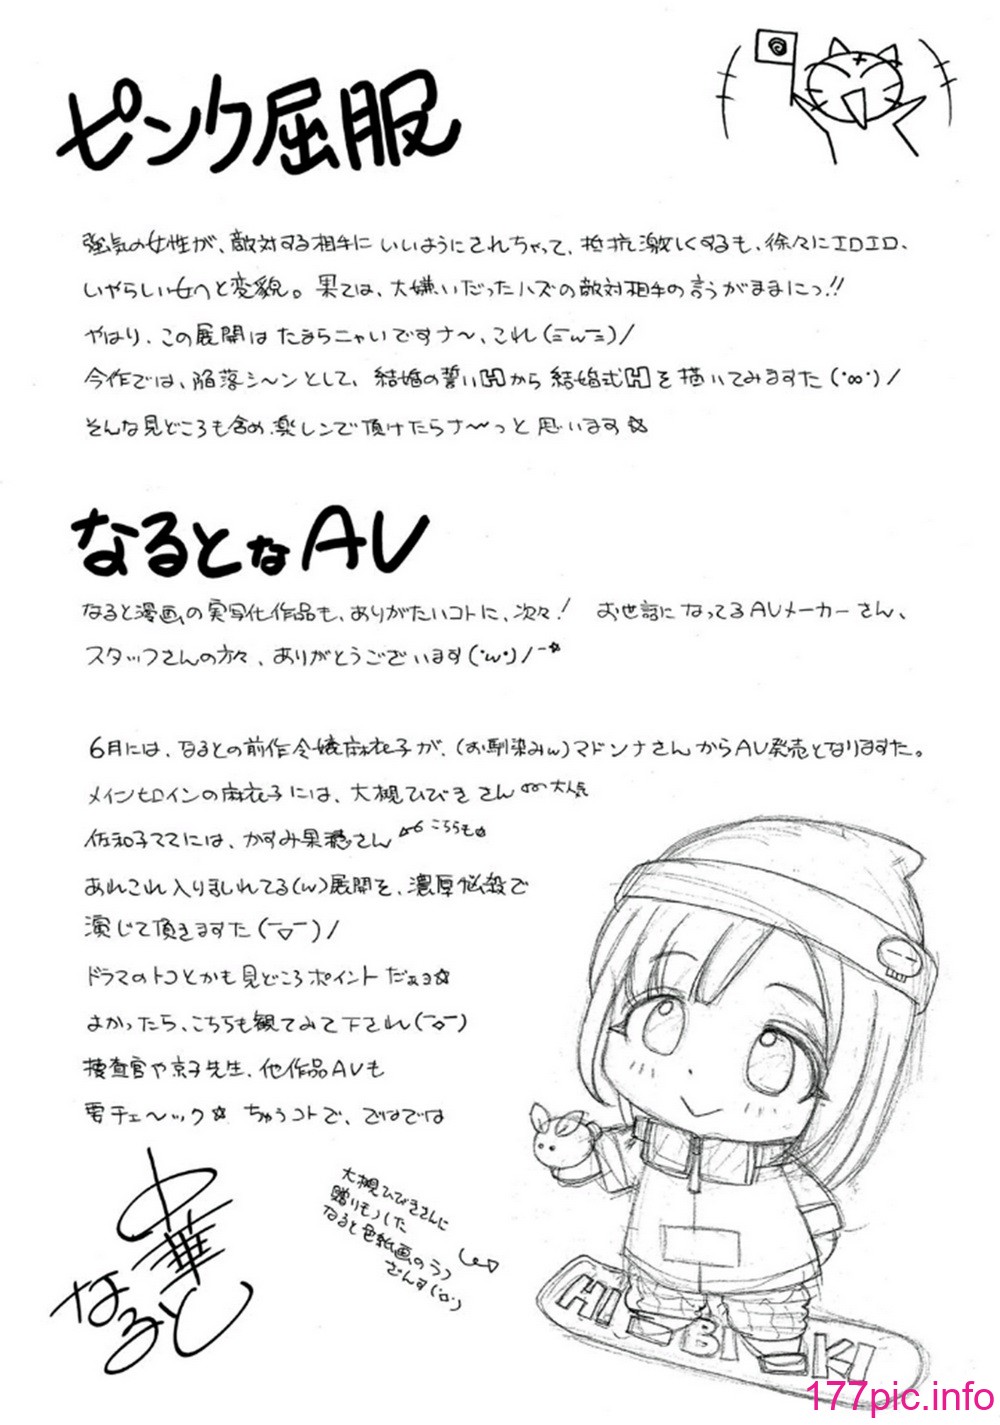 ピンク屈服
強気の女性が、敵対する相手にいいようにされちゃって、抵抗激しくするも、徐々にエロエロ、
いやらしい女へと変貌。果ては、大嫌いだったハズの敵対相手の言うがままにっ!!
やはり、この展開はたまらニャいですナ〜、これ(ミwミ)/
今作では、陥落シ〜ンとして、結婚の誓いHから結婚式Hを描いてみますた(・∞・)/
そんな見どころも含め、楽レンで頂けたらナ〜っと思います☆
なるとなAV
なると漫画の実写化作品も、ありがたいコトに、次々! お世話になってるAVメーカーさん、
スタッフさんの方々、ありがとうございます(・w・)/-☆
6月には、なるとの前作令嬢麻衣子が、(お馴染みw)マドンナさんからAV発売となりますた。
メインヒロインの麻衣子には、大槻ひびきさん 大人気
佐和子ママには、かすみ果穂さん こちらも☆
あれこれ入りまじれてる(w)展開を、濃厚悩殺で
演じて頂きますた( ̄▽ ̄)/
ドラマのトコとかも見どころポイントだぁヨ☆
よかったら、こちらも観てみて下され( ̄o ̄)
捜査官や京子先生、他作品AVも
要チェ〜ック☆ ちゅうコトで、ではでは
中華
なると
大槻ひびきさんに
贈りもうした
なると色紙画のラフ
ざんす(・o・)
HIBIKI
177pic.info